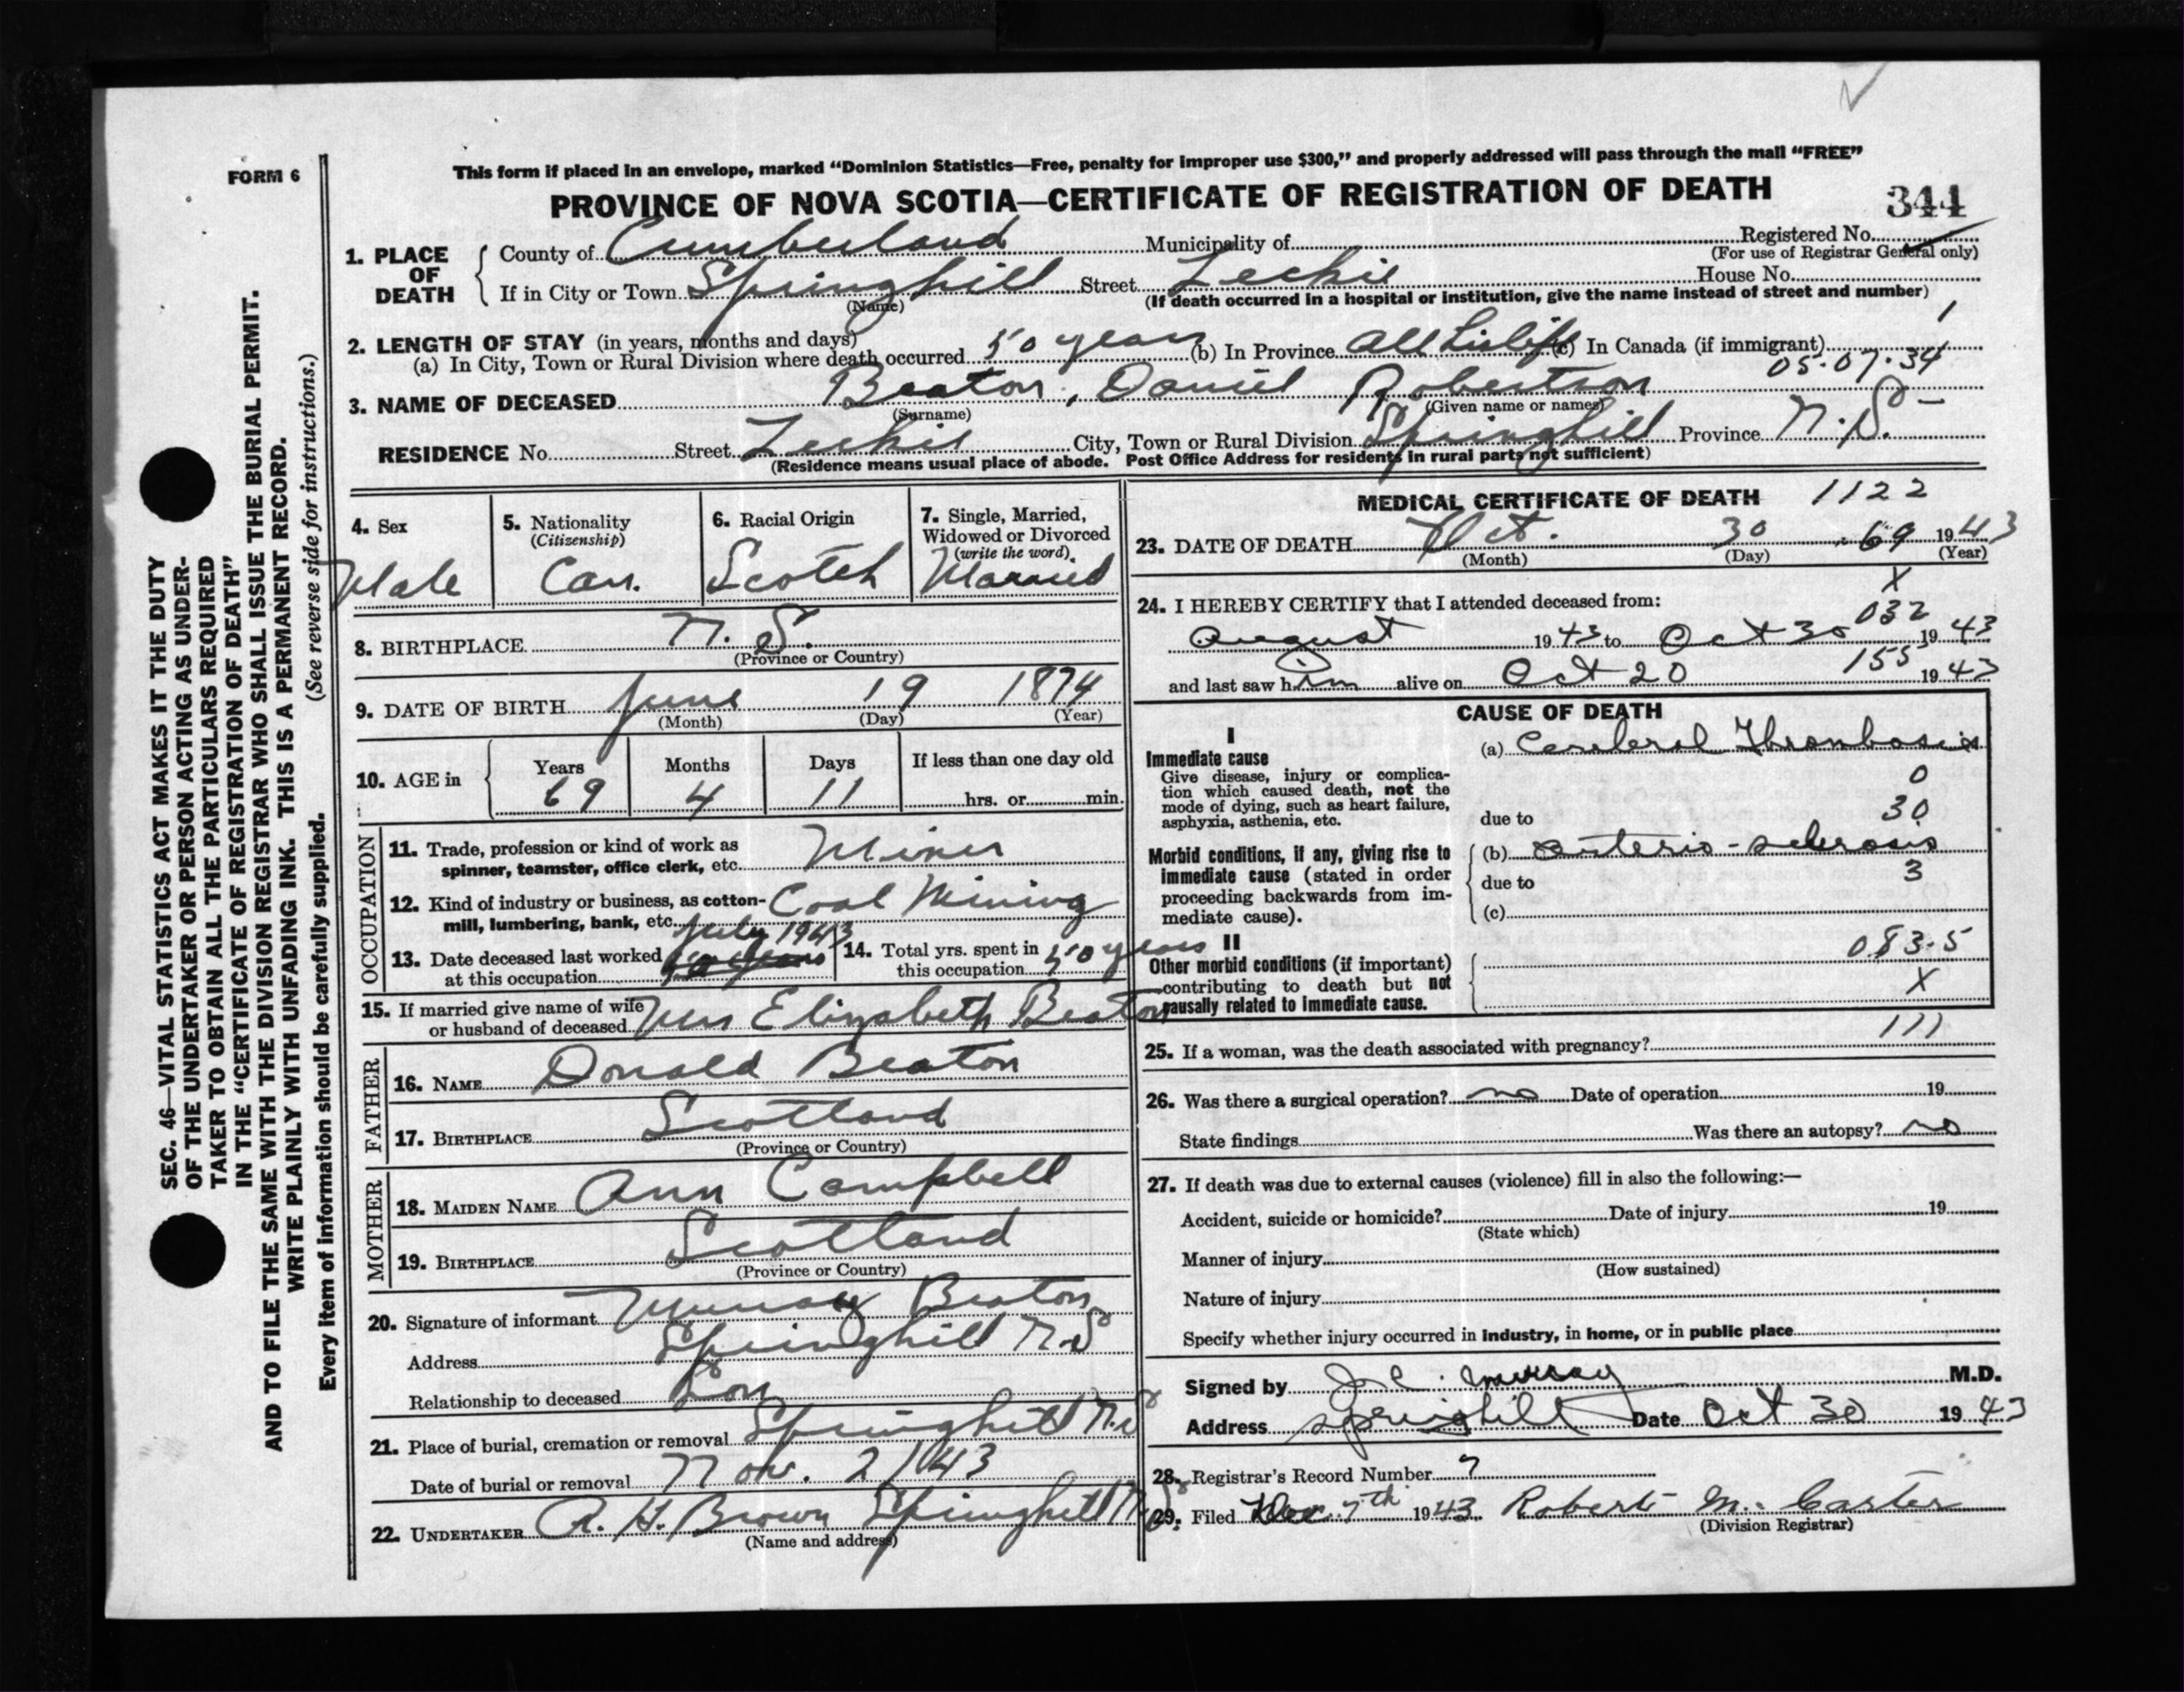 FORM 6
This form if placed in an envelope, marked “Dominion Statistics—Free, penalty for improper use $300,” and properly addressed will pass through the mail “FREE”
PROVINCE OF NOVA SCOTIA—CERTIFICATE OF REGISTRATION OF DEATH
344
1. PLACE OF DEATH
County of Cumberland Municipality of Registered No.
(For use of Registrar General only)
If in City or Town Springhill Street Leckie House No.
(Name) (If death occurred in a hospital or institution, give the name instead of street and number)
1
2. LENGTH OF STAY (in years, months and days)
(a) In City, Town or Rural Division where death occurred 50 years (b) In Province All his life (c) In Canada (if immigrant)
05·07·34
3. NAME OF DECEASED Beaton, Daniel Robertson
(Surname) (Given name or names)
RESIDENCE No. Street Leckie City, Town or Rural Division Springhill Province N.S.
(Residence means usual place of abode. Post Office Address for residents in rural parts not sufficient)
4. Sex
Male
5. Nationality
(Citizenship)
Can.
6. Racial Origin
Scotch
7. Single, Married,
Widowed or Divorced
(write the word)
Married
8. BIRTHPLACE N. S.
(Province or Country)
9. DATE OF BIRTH June 19 1874
(Month) (Day) (Year)
10. AGE in
Years Months Days If less than one day old
69 4 11 hrs. or min.
OCCUPATION
11. Trade, profession or kind of work as
spinner, teamster, office clerk, etc. Miner
12. Kind of industry or business, as cotton-
mill, lumbering, bank, etc. Coal Mining
13. Date deceased last worked
at this occupation July 1943
14. Total yrs. spent in
this occupation 50 years
15. If married give name of wife
or husband of deceased Mrs Elizabeth Beaton
FATHER
16. NAME Donald Beaton
17. BIRTHPLACE Scotland
(Province or Country)
MOTHER
18. MAIDEN NAME Ann Campbell
19. BIRTHPLACE Scotland
(Province or Country)
20. Signature of informant Murray Beaton
Address Springhill N.S
Relationship to deceased Son
21. Place of burial, cremation or removal Springhill N.S
Date of burial or removal Nov. 2/43
22. UNDERTAKER A. H. Brown Springhill N.S.
(Name and address)
MEDICAL CERTIFICATE OF DEATH 1122
23. DATE OF DEATH Oct. 30 69 1943
(Month) (Day) (Year)
X
24. I HEREBY CERTIFY that I attended deceased from:
032
August 1943 to Oct 30 1943
155
and last saw him alive on Oct 20 1943
CAUSE OF DEATH
I
Immediate cause
Give disease, injury or complica-
tion which caused death, not the
mode of dying, such as heart failure,
asphyxia, asthenia, etc.
(a) Cerebral Thrombosis
0
30
due to
Morbid conditions, if any, giving rise to
immediate cause (stated in order
proceeding backwards from im-
mediate cause).
(b) arterio-sclerosis
3
due to
(c)
II
Other morbid conditions (if important)
contributing to death but not
causally related to immediate cause.
083·5
X
111
25. If a woman, was the death associated with pregnancy?
26. Was there a surgical operation? no Date of operation 19
State findings Was there an autopsy? no
27. If death was due to external causes (violence) fill in also the following:—
Accident, suicide or homicide? Date of injury 19
(State which)
Manner of injury
(How sustained)
Nature of injury
Specify whether injury occurred in industry, in home, or in public place
Signed by J. C. Murray M.D.
Address Springhill Date Oct 30 1943
28. Registrar's Record Number 7
29. Filed Dec. 7th 1943 Robert M. Carter
(Division Registrar)
SEC. 46—VITAL STATISTICS ACT MAKES IT THE DUTY
OF THE UNDERTAKER OR PERSON ACTING AS UNDER-
TAKER TO OBTAIN ALL THE PARTICULARS REQUIRED
IN THE “CERTIFICATE OF REGISTRATION OF DEATH”
AND TO FILE THE SAME WITH THE DIVISION REGISTRAR WHO SHALL ISSUE THE BURIAL PERMIT.
WRITE PLAINLY WITH UNFADING INK. THIS IS A PERMANENT RECORD.
Every item of information should be carefully supplied. (See reverse side for instructions.)